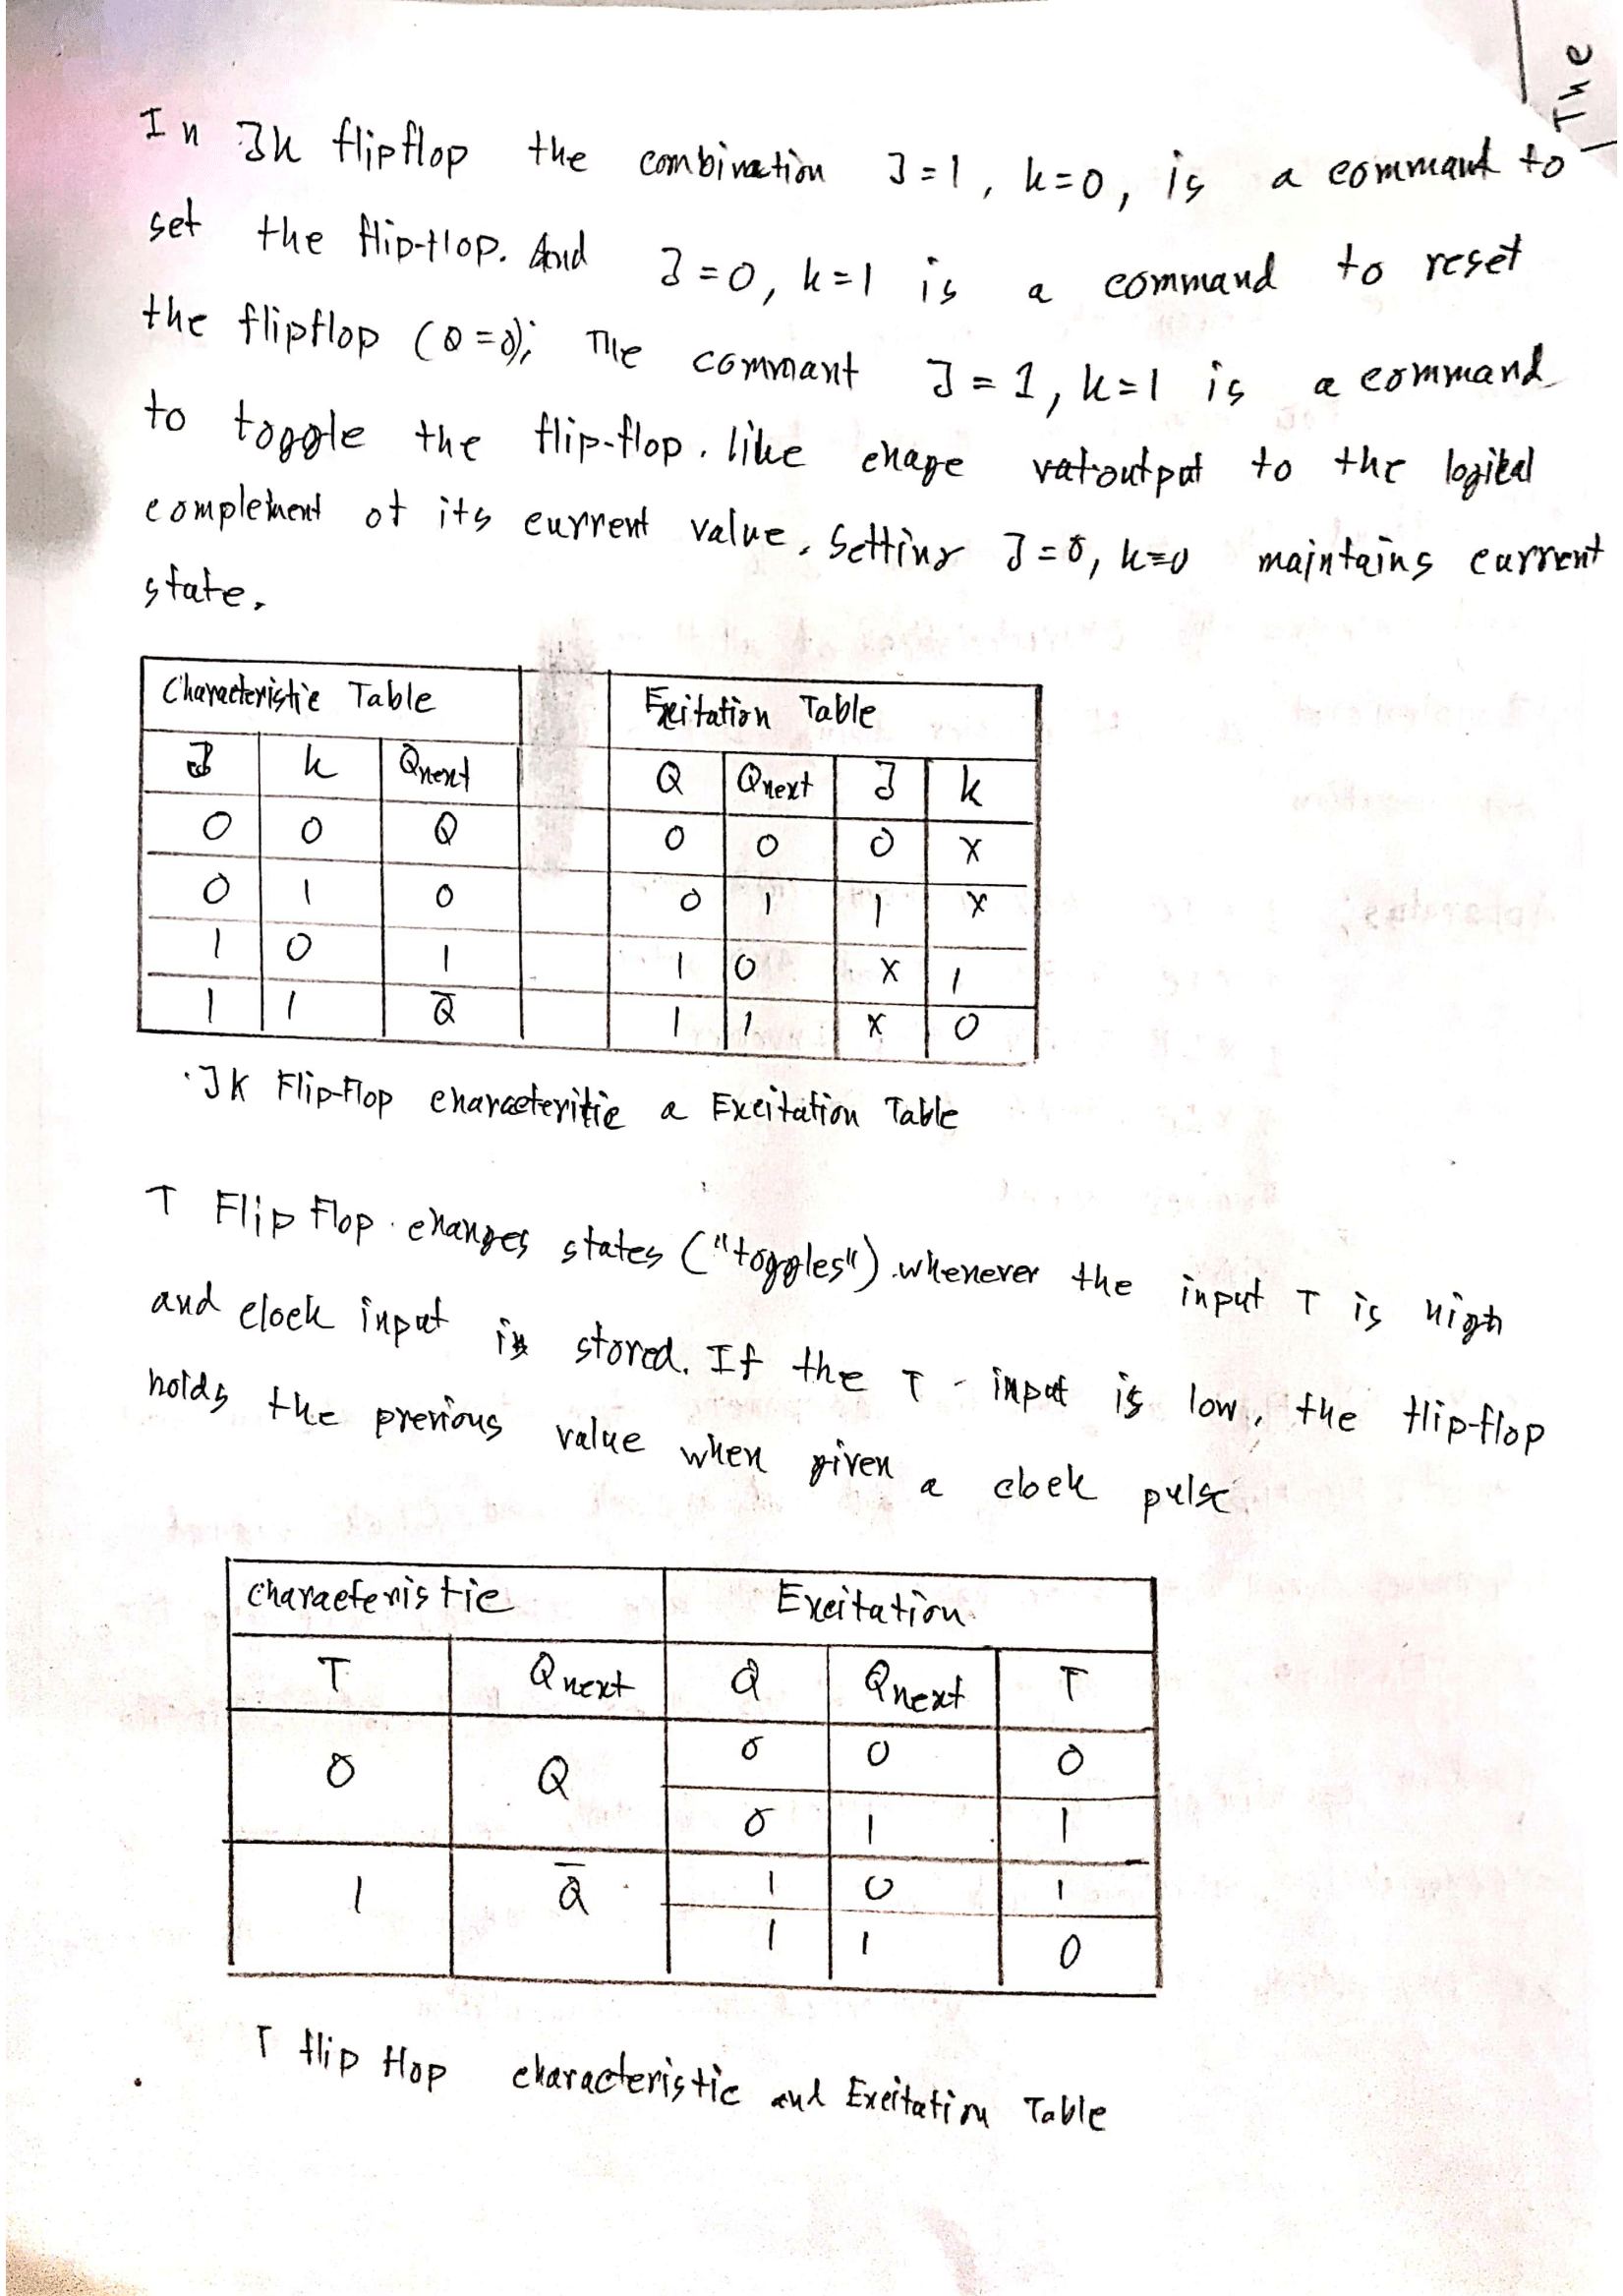 The
In JK flipflop the combination J=1, k=0, is a commant to
set the flip-flop. And J=0, k=1 is a command to reset
the flipflop (Q=0); The commant J=1, k=1 is a command
to toggle the flip-flop. like chage output to the logical
complement of its current value. Setting J=0, k=0 maintains current
state.
Characteristic Table Exitation Table
J k Qnext Q Qnext J k
0 0 Q 0 0 0 X
0 1 0 0 1 1 X
1 0 1 1 0 X 1
1 1 Q̅ 1 1 X 0
JK Flip-Flop characteritic a Excitation Table
T Flip Flop changes states ("toggles") whenever the input T is high
and clock input is stored. If the T - input is low, the flip-flop
holds the previous value when given a clock pulse.
Characteristic Excitation
T Qnext Q Qnext T
0 Q 0 0 0
0 1 1
1 Q̅ 1 0 1
1 1 0
T flip flop characteristic and Excitation Table